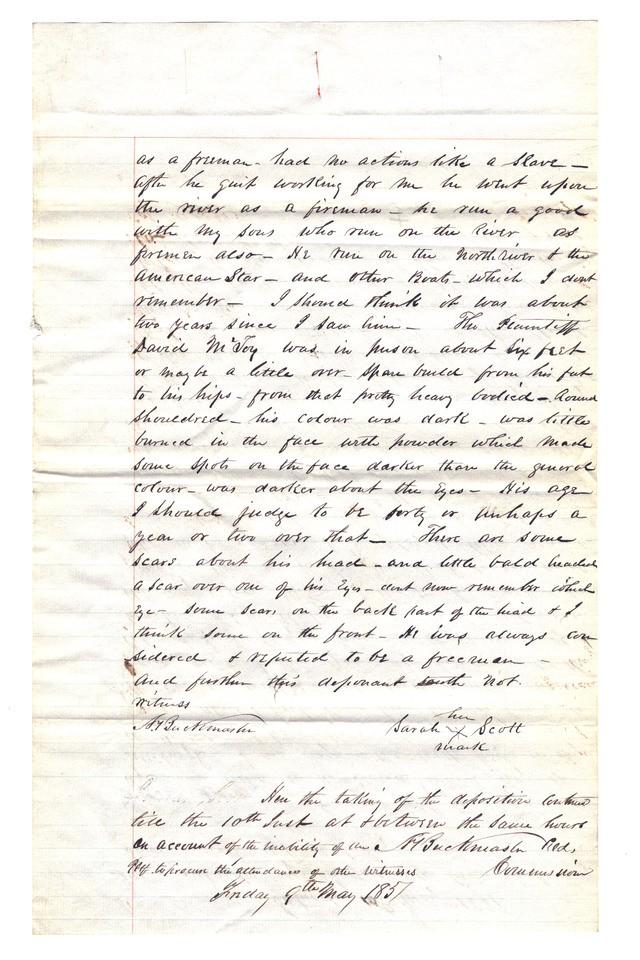 as a freeman - had no actions like a slave -
After he quit working for me he went upon
the river as a fireman - he run a good
with my sons who run on the River as
firemen also - He run on the North river & the
American Star - and other Boats - which I dont
remember - I should think it was about
two years since I saw him - The Plaintiff
David McFoy was in person about Six feet
or maybe a little over - spare build from his feet
to his hips - from that pretty heavy bodied - Round
shouldred - his colour was dark - was little
burned in the face with powder which made
some spots on the face darker than the general
colour - was darker about the Eyes - His age
I should judge to be forty or perhaps a
year or two over that - There are some
scars about his head - and little bald headed
a scar over one of his Eyes - dont now remember which
Eye - some scars on the back part of the head & I
think some on the front - He was always con
sidered & reputed to be a freeman -
And further this deponant saith not.
Witness
N Buckmaster
her
Sarah X Scott
mark
Here the taking of the deposition continued
till the 10th Inst at & between the same hours
on account of the inability of the
N Buckmaster
Plff. to procure the attendance of other witnesses
Commissioner
Friday 9th May 1851